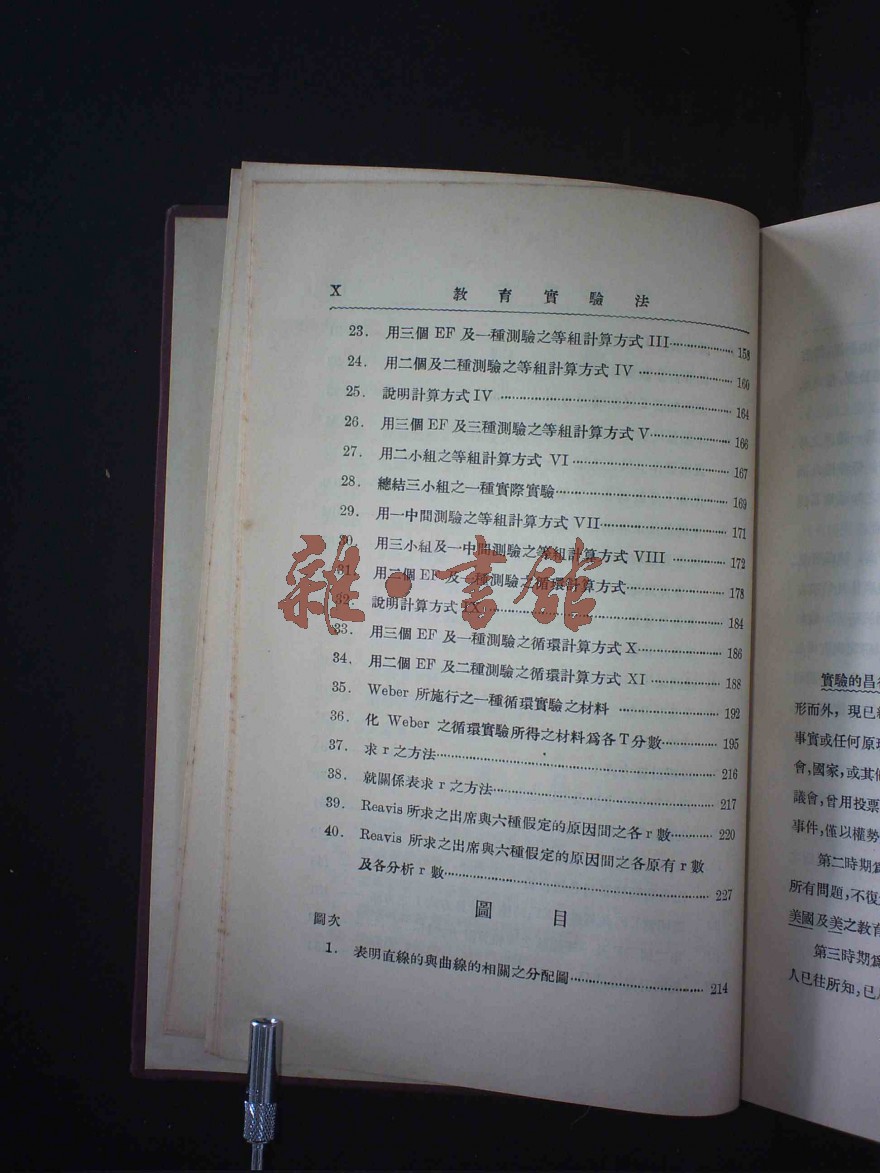 X 教育實驗法
23. 用三個 EF 及一種測驗之等組計算方式 III 158
24. 用二個及二種測驗之等組計算方式 IV 160
25. 說明計算方式 IV 164
26. 用三個 EF 及三種測驗之等組計算方式 V 166
27. 用二小組之等組計算方式 VI 167
28. 總結三小組之一種實際實驗 169
29. 用一中間測驗之等組計算方式 VII 171
30. 用三小組及一中間測驗之等組計算方式 VIII 172
31. 用二個 EF 及一種測驗之循環計算方式 178
32. 說明計算方式 IX 184
33. 用三個 EF 及一種測驗之循環計算方式 X 186
34. 用二個 EF 及二種測驗之循環計算方式 XI 188
35. Weber 所施行之一種循環實驗之材料 192
36. 化 Weber 之循環實驗所得之材料爲各 T 分數 195
37. 求 r 之方法 216
38. 就關係表求 r 之方法 217
39. Reavis 所求之出席與六種假定的原因間之各 r 數 220
40. Reavis 所求之出席與六種假定的原因間之各原有 r 數
及各分析 r 數 227
圖目
圖次
1. 表明直線的與曲線的相關之分配圖 214
雜·書館
實驗的昌
形而外，現已
事實或任何原
會，國家，或其
議會，曾用投票
事件，僅以權勢
第二時期
所有問題，不復
美國及美之教
第三時期
人已往所知，已